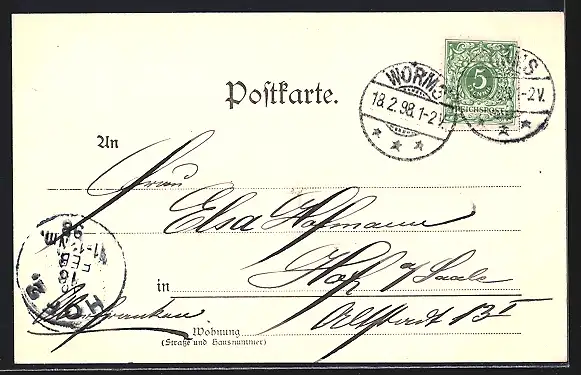 Postkarte.
WORMS
18.2.98.1-2V.
* * *
5
REICHSPOST
MS
1-2V.
* * *
An
Frau
Elsa Hofmann
in Hof a/Saale
Oberfranken
Altstadt 13 I
Wohnung
(Straße und Hausnummer)
HOF
FEB.
98